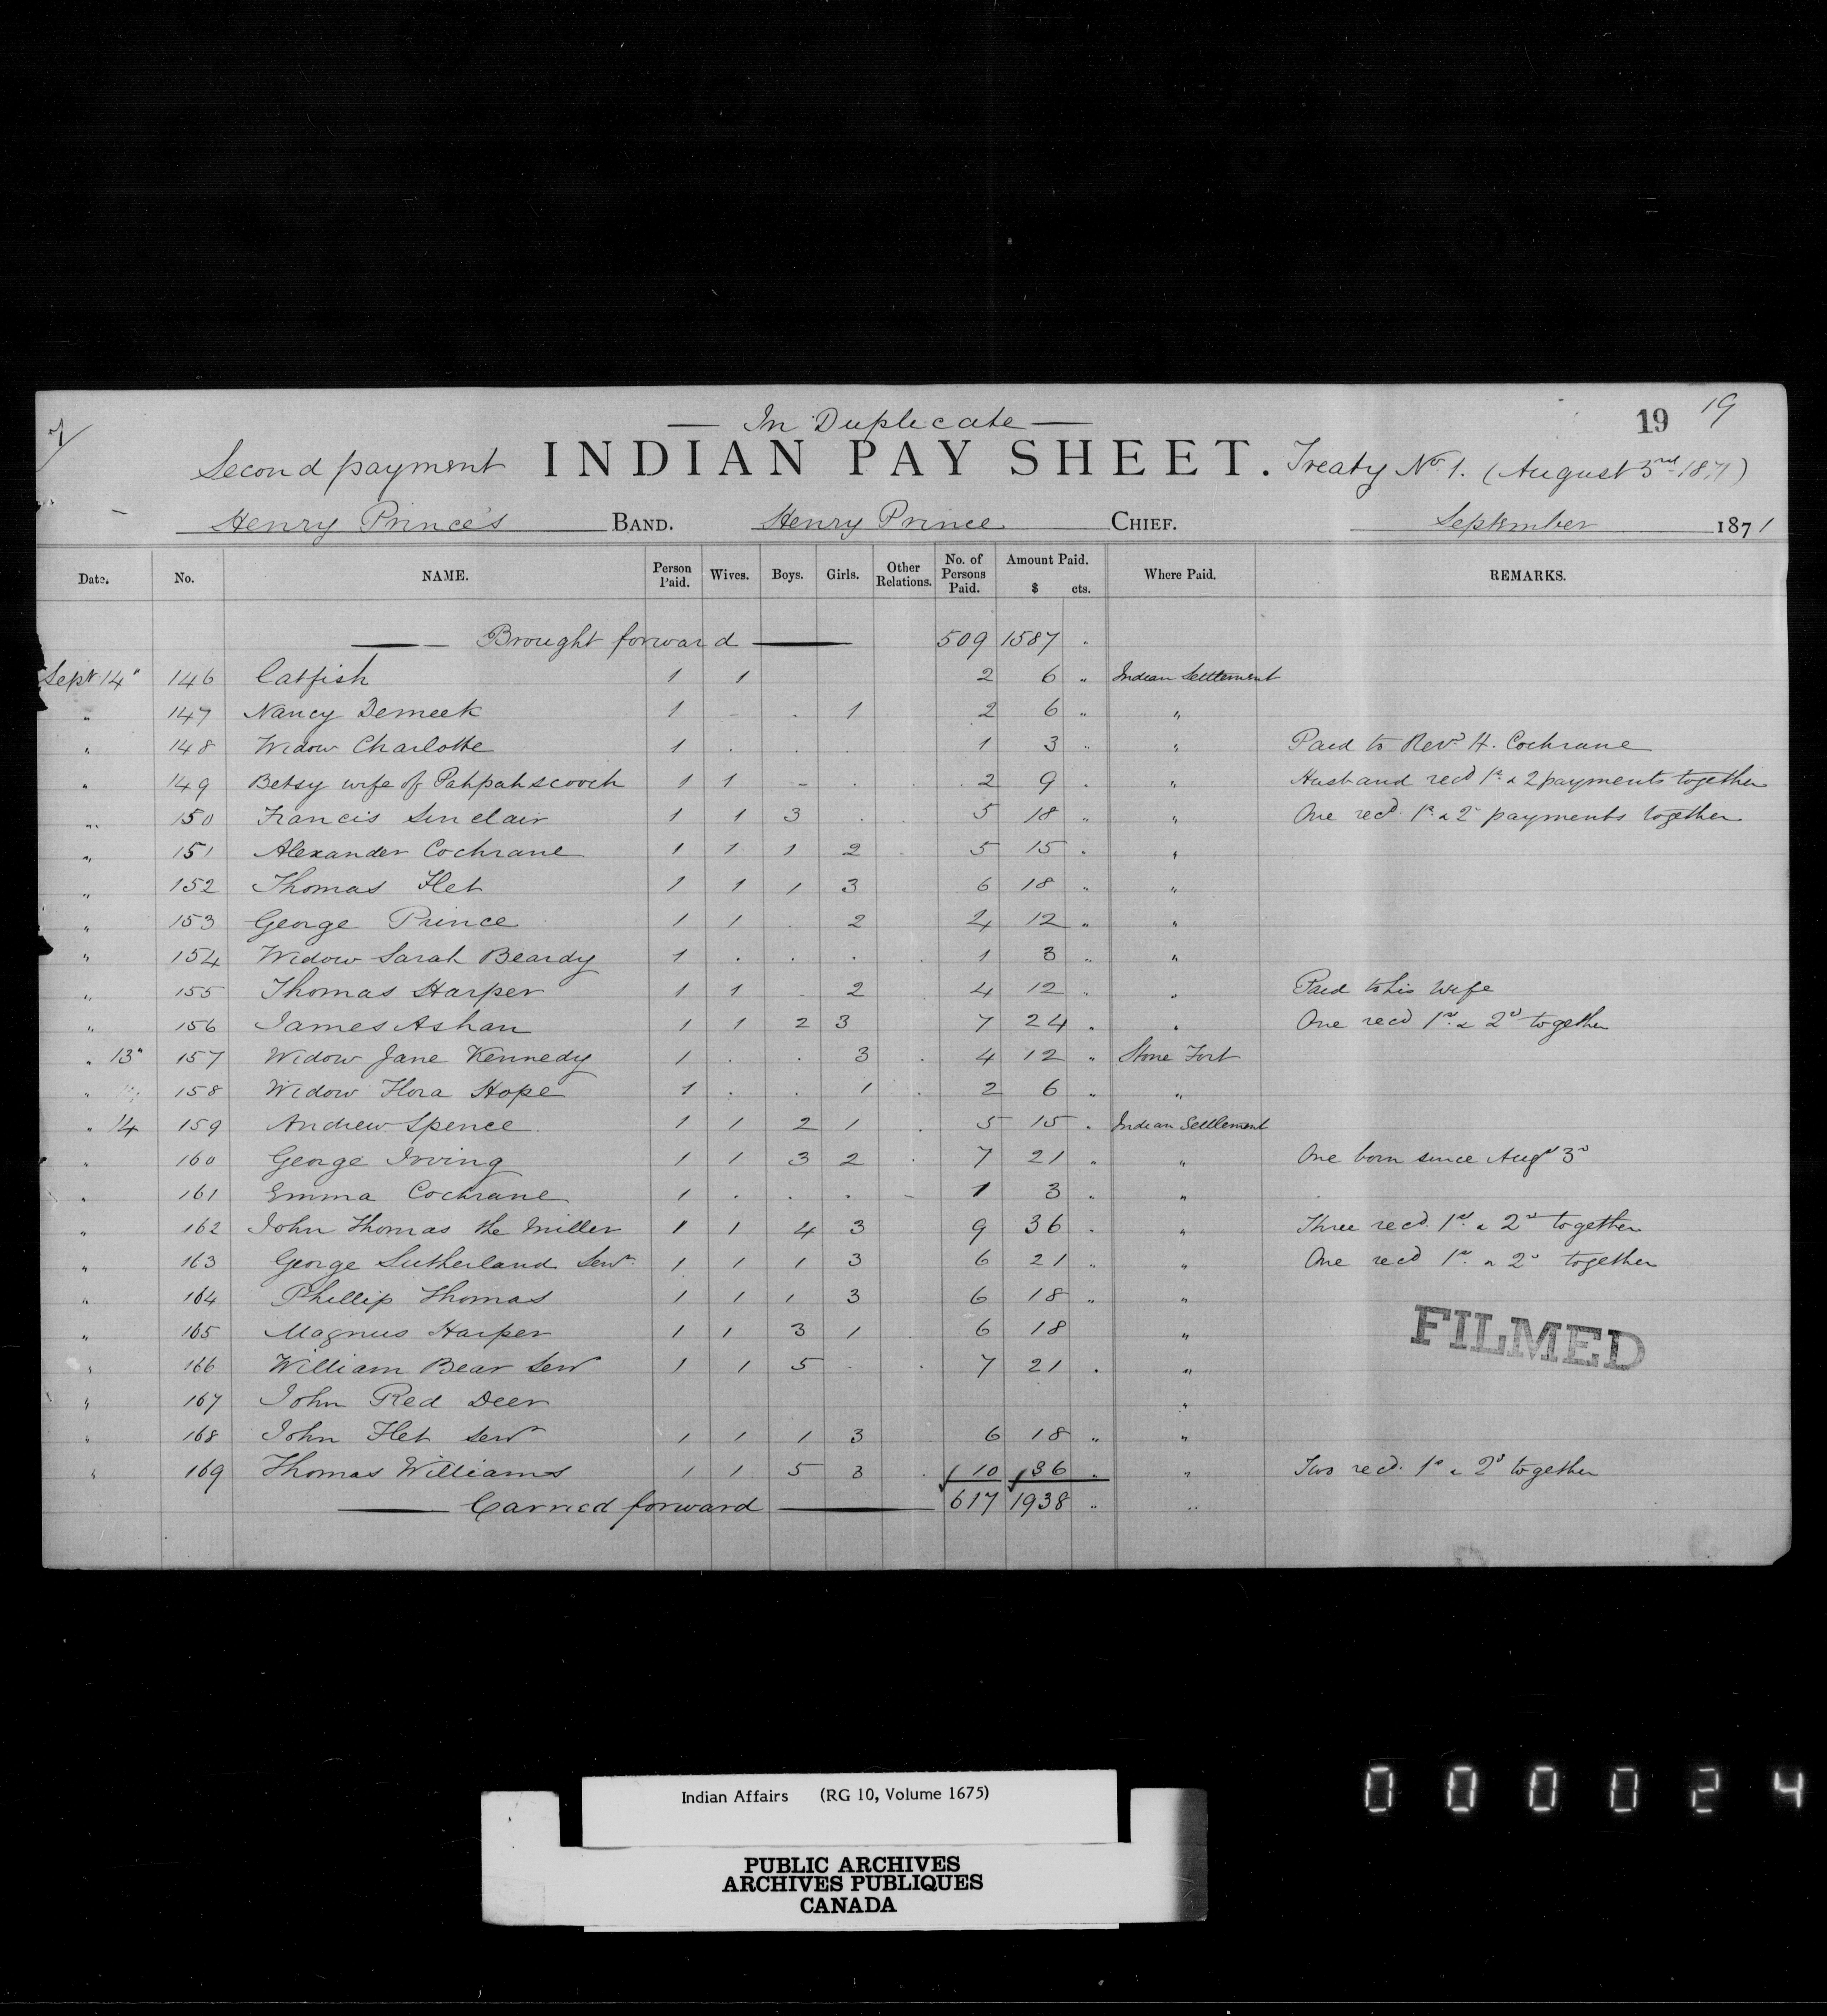 — In Duplicate —
19 19
Second payment INDIAN PAY SHEET. Treaty No 1. (August 3rd 1871)
Henry Prince's BAND. Henry Prince CHIEF. September 1871
Date. No. NAME. Person Paid. Wives. Boys. Girls. Other Relations. No. of Persons Paid. Amount Paid. $ cts. Where Paid. REMARKS.
Brought forward 509 1587 .
Sept 14" 146 Catfish 1 1 2 6 " Indian Settlement
" 147 Nancy Demeek 1 - . 1 2 6 " "
" 148 Widow Charlotte 1 . . . 1 3 " " Paid to Revd H. Cochrane
" 149 Betsy wife of Pahpahscooch 1 1 - . . 2 9 . " Husband recd 1st & 2 payments together
" 150 Francis Sinclair 1 1 3 . . 5 18 " " One recd. 1st & 2d payments together
" 151 Alexander Cochrane 1 1 1 2 . 5 15 . "
" 152 Thomas Flet 1 1 1 3 6 18 " "
" 153 George Prince 1 1 . 2 4 12 " "
" 154 Widow Sarah Beardy 1 . . . . 1 3 " "
" 155 Thomas Harper 1 1 . 2 . 4 12 " " Paid to his Wife
" 156 James Ashan 1 1 2 3 7 24 . " One recd 1st & 2d together
" 13" 157 Widow Jane Kennedy 1 . . 3 . 4 12 " Stone Fort
" 158 Widow Flora Hope 1 . . 1 . 2 6 " "
" 14 159 Andrew Spence 1 1 2 1 . 5 15 . Indian Settlement
" 160 George Irving 1 1 3 2 . 7 21 " " One born since Augst 3d
" 161 Emma Cochrane 1 . . . - 1 3 " "
" 162 John Thomas the Miller 1 1 4 3 9 36 . " Three recd. 1st & 2d together
" 163 George Sutherland Senr. 1 1 1 3 6 21 " " One recd 1st & 2d together
" 164 Phillip Thomas 1 1 1 3 6 18 " "
" 165 Magnus Harper 1 1 3 1 . 6 18 "
" 166 William Bear Senr 1 1 5 . . 7 21 . "
" 167 John Red Deer "
" 168 John Flet Senr 1 1 1 3 6 18 " "
" 169 Thomas Williams 1 1 5 3 . 10 36 . " Two recd. 1st & 2d together
Carried forward 617 1938 " "
FILMED
Indian Affairs (RG 10, Volume 1675)
PUBLIC ARCHIVES
ARCHIVES PUBLIQUES
CANADA
000024